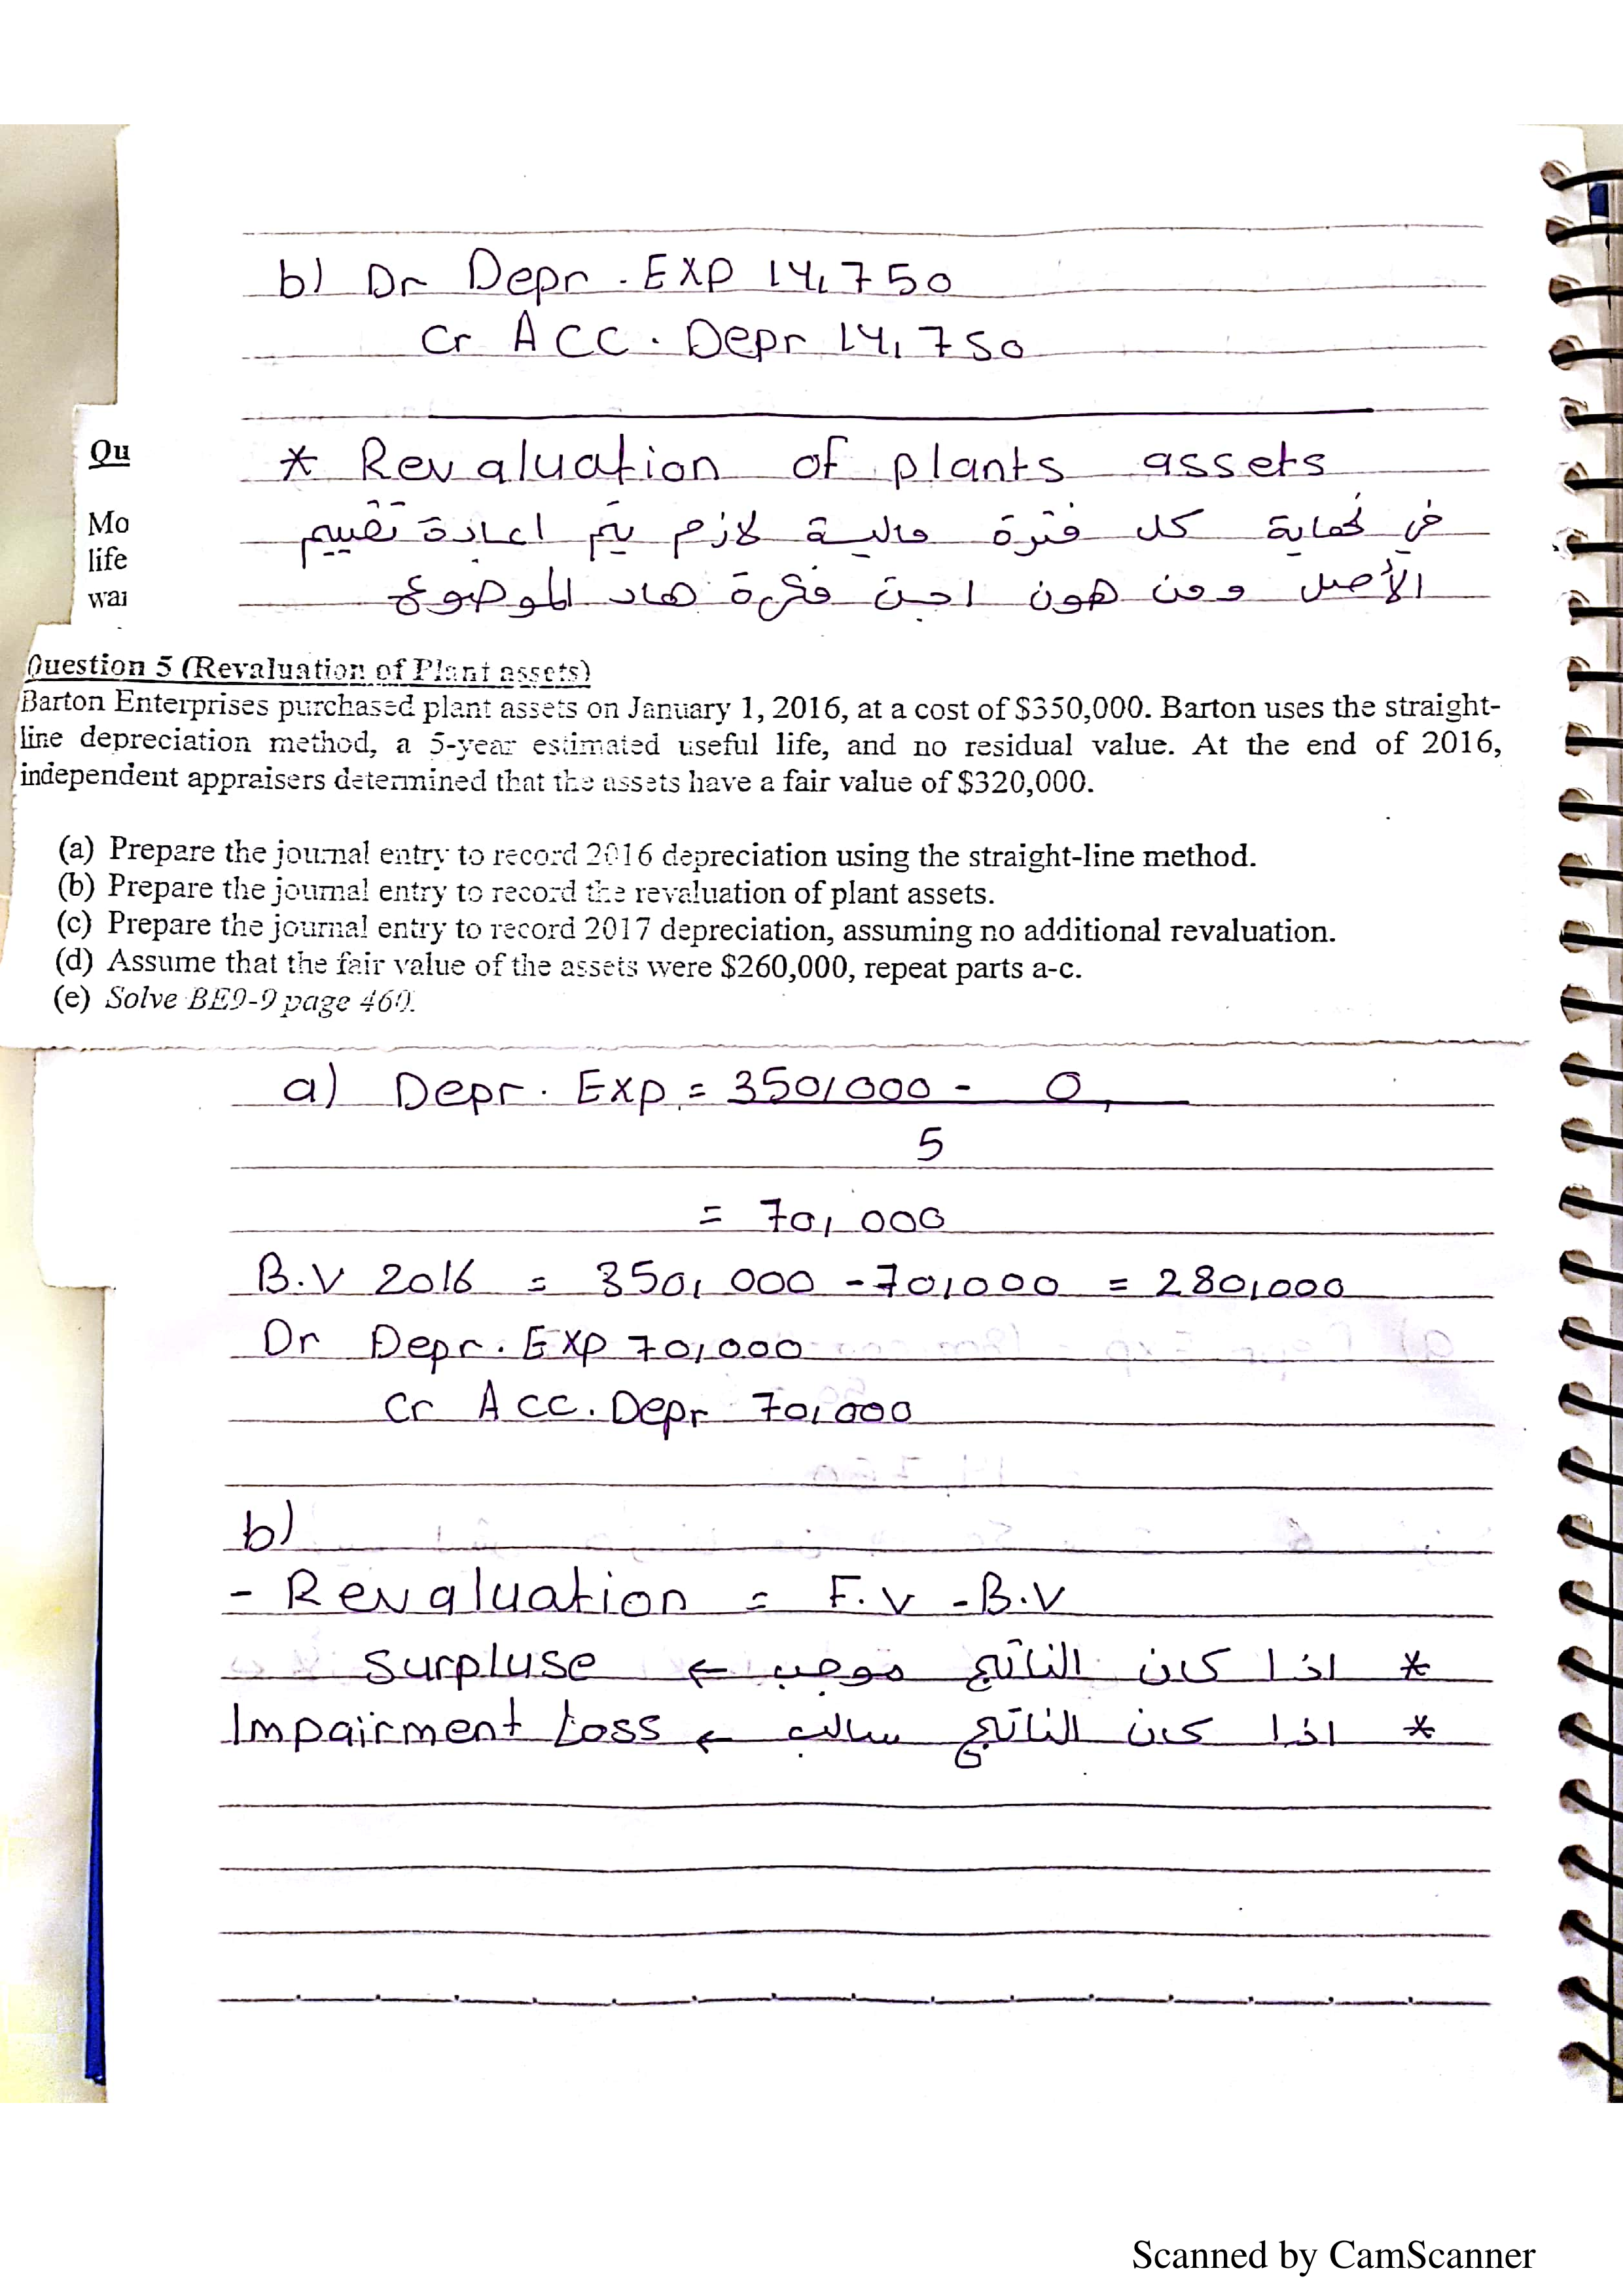 b) Dr Depr. Exp 14,750
Cr Acc. Depr 14,750
* Revaluation of plants assets
في نهاية كل فترة مالية لازم يتم اعادة تقييم
الأصل ومن هون اجت فكرة هاد الموضوع
Qu
Mo
life
wai
Question 5 (Revaluation of Plant assets)
Barton Enterprises purchased plant assets on January 1, 2016, at a cost of $350,000. Barton uses the straight-
line depreciation method, a 5-year estimated useful life, and no residual value. At the end of 2016,
independent appraisers determined that the assets have a fair value of $320,000.
(a) Prepare the journal entry to record 2016 depreciation using the straight-line method.
(b) Prepare the journal entry to record the revaluation of plant assets.
(c) Prepare the journal entry to record 2017 depreciation, assuming no additional revaluation.
(d) Assume that the fair value of the assets were $260,000, repeat parts a-c.
(e) Solve BE9-9 page 460.
a) Depr. Exp = 350,000 - 0
5
= 70,000
B.V 2016 = 350,000 - 70,000 = 280,000
Dr Depr. Exp 70,000
Cr Acc. Depr 70,000
b)
- Revaluation = F.V - B.V
* اذا كان الناتج موجب ← surpluse
* اذا كان الناتج سالب ← Impairment Loss
Scanned by CamScanner